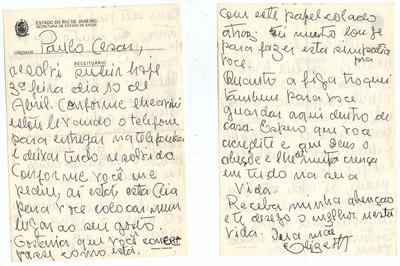 ESTADO DO RIO DE JANEIRO
SECRETARIA DE ESTADO DE SAÚDE
UNIDADE
Paulo Cesar,
RECEITUÁRIO
resolvi subir hoje
3ª feira dia 10 de
Abril. Conforme
estou levando o telefone
para entregar na telefonica
e deixar tudo resolvido
Conforme você me
pediu, aí está esta
para você colocar num
lugar ao seu gosto.
Gostaria que você
como está.
com este papel colado
atraz fui muito longe
para fazer esta simpatia
pra
voce.
Quanto a figa troquei
tambem para voce
guardar aqui dentro de
casa. Espero que voce
acredite e que Deus o
abençoe e lhe muita crença
em tudo na sua
Vida.
Receba minha abenção
e te desejo o melhor nesta
vida. Sua mãe